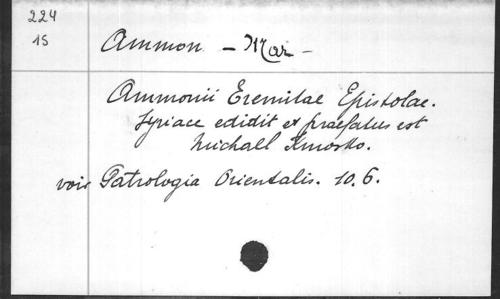 224
15
Ammon - Mar -
Ammonii Eremitae Epistolae.
Syriace edidit et praefatus est
Michael Kmosko.
voir Patrologia Orientalis. 10. 6.